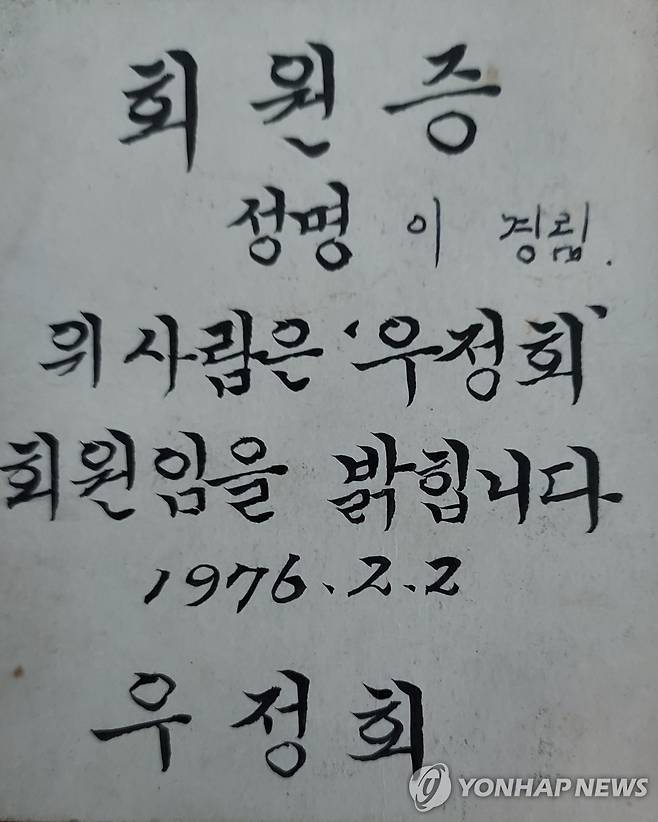 회 원 증
정명 이 경림.
위 사람은 '우정회'
회원임을 밝힙니다
1976. 2. 2
우 정 회
YONHAP NEWS